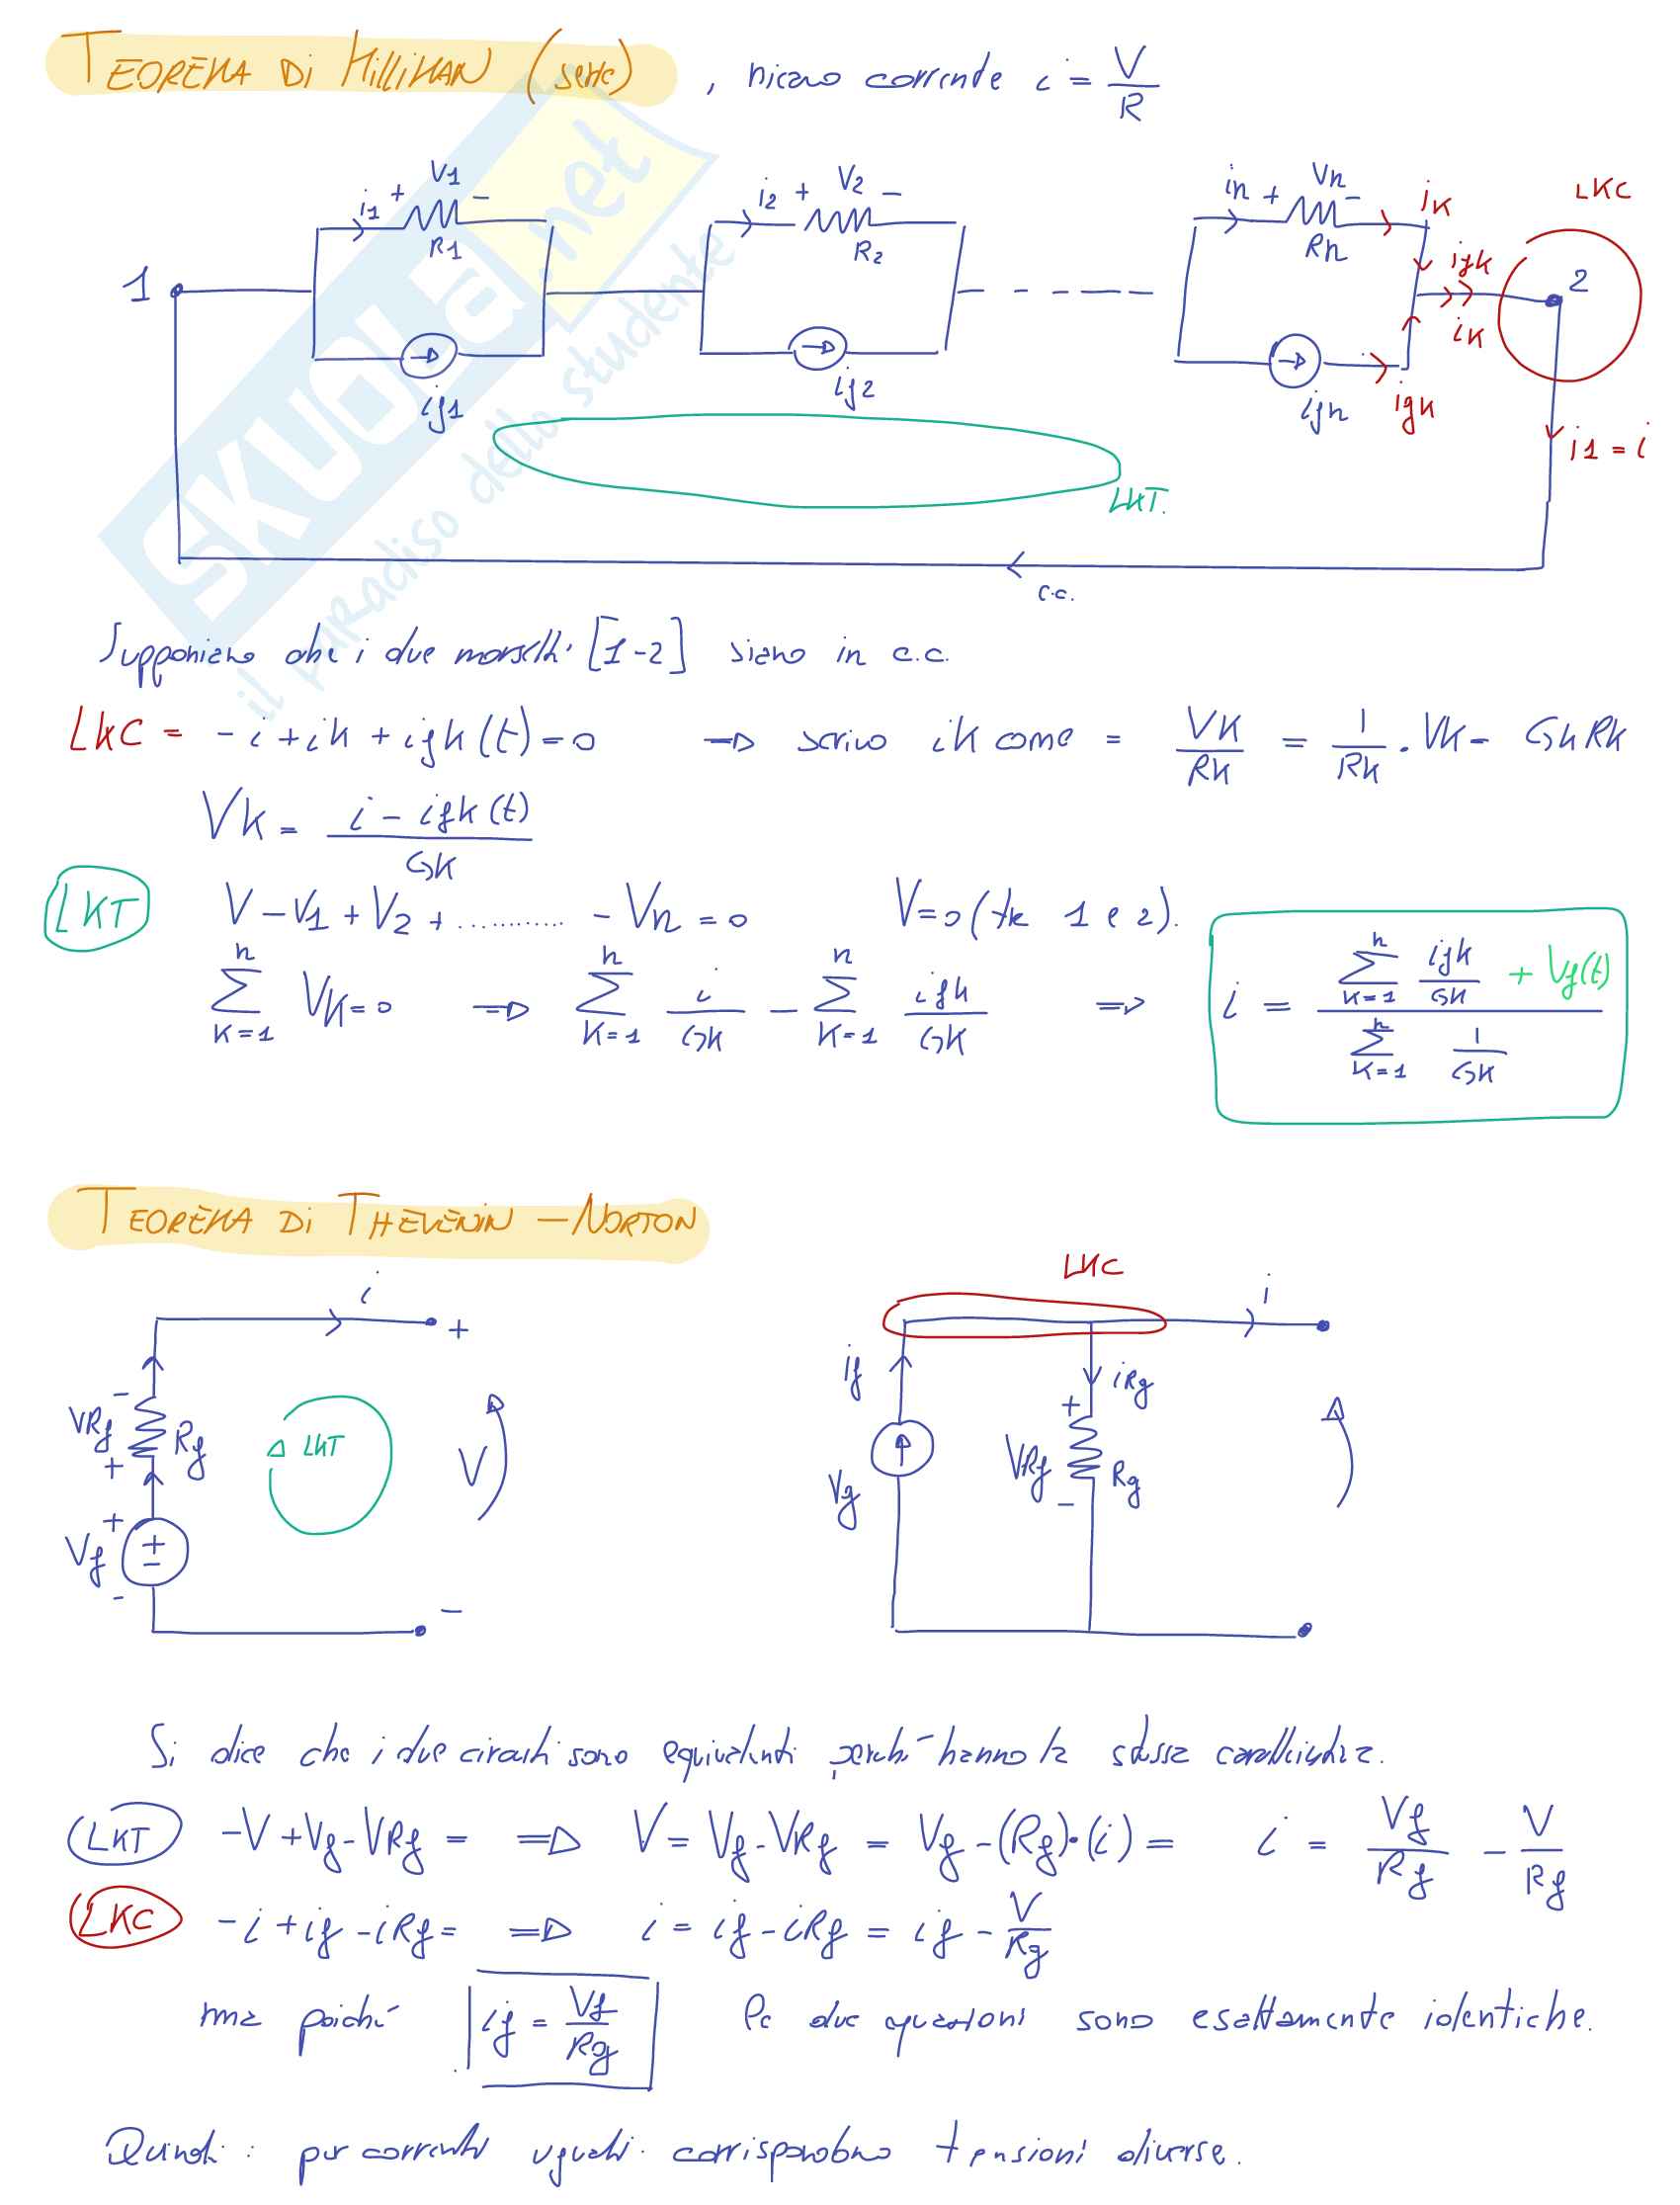 TEOREMA Di MilliMAN (serie) , nicavo corrente i = V/R
V1 V2 Vn LKC
i1 + - i2 + - in + - iK
R1 R2 Rn
1 igk 2
iK
ig1 ig2 ign igk
i1 = i
LKT.
c.c.
Supponiamo che i due morsetti [1-2] siano in c.c.
LKC = -i + ik + igk(t) = 0 → scrivo ik come = VK/RK = 1/RK . VK = GkRk
VK = (i - igk(t))/GK
LKT V - V1 + V2 + ........... - Vn = 0 V=0 (tra 1 e 2).
n∑K=1 VK=0 ⇒ n∑K=1 i/GK - n∑K=1 igk/GK ⇒ i = (n∑K=1 igk/GK + Vg(t)) / (n∑K=1 1/GK)
TEOREMA Di THEVENiN - NORTON
LKC
i i
+
ig iRg
-
VRg Rg LKT V + VRg Rg
+ Vg -
+
Vg + -
- -
Si dice che i due circuiti sono equivalenti perché hanno la stessa caratteristica.
LKT -V + Vg - VRg = ⇒ V = Vg - VRg = Vg - (Rg)·(i) = i = Vg/Rg - V/Rg
LKC -i + ig - iRg = ⇒ i = ig - iRg = ig - V/Rg
ma poiché ig = Vg/Rg le due equazioni sono esattamente identiche.
Quindi: per correnti uguali corrispondono tensioni diverse.
SKUOLA.net
il paradiso dello studente